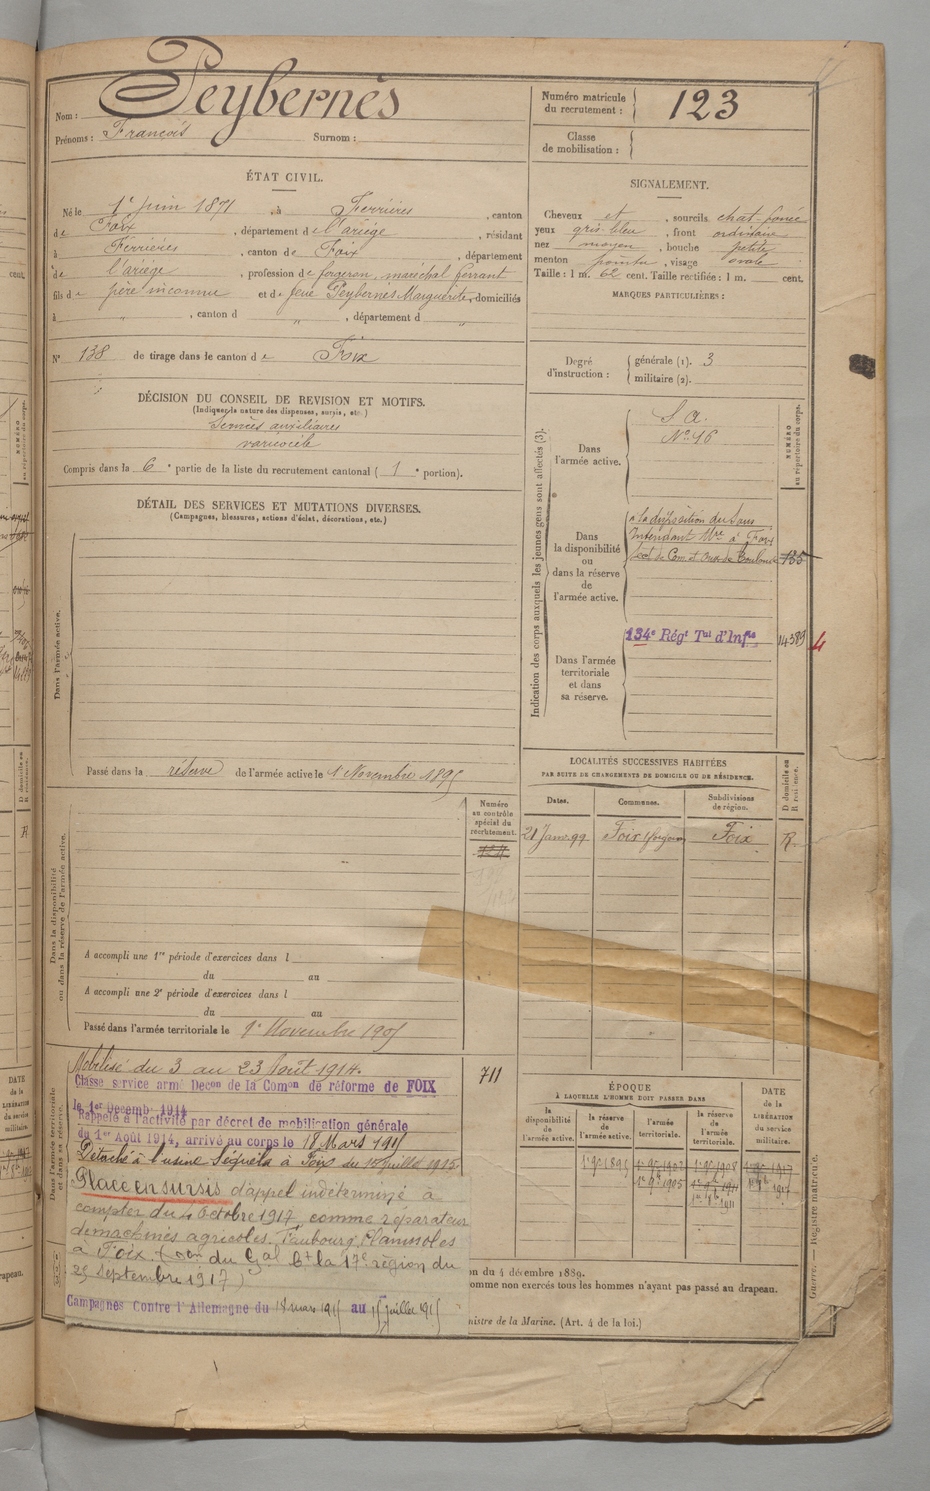 Nom : Peybernès
Prénoms : François Surnom :
Numéro matricule du recrutement : 123
Classe de mobilisation :
ÉTAT CIVIL.
Né le 1er Juin 1871, à Ferrières, canton
de Foix, département de l'ariège, résidant
à Ferrières, canton de Foix, département
de l'ariège, profession de forgeron, maréchal ferrant
fils de père inconnu et de feue Peybernès Marguerite, domiciliés
à " , canton d " , département d "
N° 138 de tirage dans le canton de Foix
SIGNALEMENT.
Cheveux et , sourcils chat-foncé
yeux gris-bleu , front ordinaire
nez moyen , bouche petite
menton pointu , visage ovale
Taille : 1 m. 62 cent. Taille rectifiée : 1 m. cent.
MARQUES PARTICULIÈRES :
Degré d'instruction : générale (1). 3
militaire (2).
DÉCISION DU CONSEIL DE REVISION ET MOTIFS.
(Indiquer la nature des dispenses, sursis, etc.)
Services auxiliaires
varicocèle
Compris dans la 6e partie de la liste du recrutement cantonal ( 1e portion).
DÉTAIL DES SERVICES ET MUTATIONS DIVERSES.
(Campagnes, blessures, actions d'éclat, décorations, etc.)
Dans l'armée active.
Passé dans la réserve de l'armée active le 1 Novembre 1895
Indication des corps auxquels les jeunes gens sont affectés (3).
NUMÉRO au répertoire du corps.
Dans l'armée active.
S. A.
N° 46
Dans la disponibilité ou dans la réserve de l'armée active.
à la disposition du Sous
Intendant Mre à Foix
135
Dans l'armée territoriale et dans sa réserve.
134e Régt Tal d'Infie
14389
4
LOCALITÉS SUCCESSIVES HABITÉES
PAR SUITE DE CHANGEMENTS DE DOMICILE OU DE RÉSIDENCE.
Dates. Communes. Subdivisions de région. D domicile ou R résidence.
21 Janv. 99 Foix Foix R.
Dans la disponibilité ou dans la réserve de l'armée active.
Numéro au contrôle spécial du recrutement.
A accompli une 1re période d'exercices dans l
du au
A accompli une 2e période d'exercices dans l
du au
Passé dans l'armée territoriale le 1er Novembre 1905
Dans l'armée territoriale et dans sa réserve.
711
Mobilisé du 3 au 23 Août 1914.
Classe service armé Decon de la Comon de réforme de FOIX
le 1er Décemb 1914
Rappelé à l'activité par décret de mobilication générale
du 1er Août 1914, arrivé au corps le 18 Mars 1915
Détaché à l'usine Séguéla à Foix du 15 juillet 1915
Placé en sursis d'appel indéterminé à
compter du 4 Octobre 1917, comme réparateur
de machines agricoles, Faubourg Planissoles
à Foix (Don du Gal Ct la 17e région du
29 Septembre 1917)
Campagnes Contre l'Allemagne du 18 mars 1915 au 15 juillet 1915
ÉPOQUE
À LAQUELLE L'HOMME DOIT PASSER DANS
la disponibilité de l'armée active.
la réserve de l'armée active.
l'armée territoriale.
la réserve de l'armée territoriale.
DATE de la LIBÉRATION du service militaire.
on du 4 décembre 1889.
omme non exercés tous les hommes n'ayant pas passé au drapeau.
nistre de la Marine. (Art. 4 de la loi.)
Guerre. — Registre matricule.